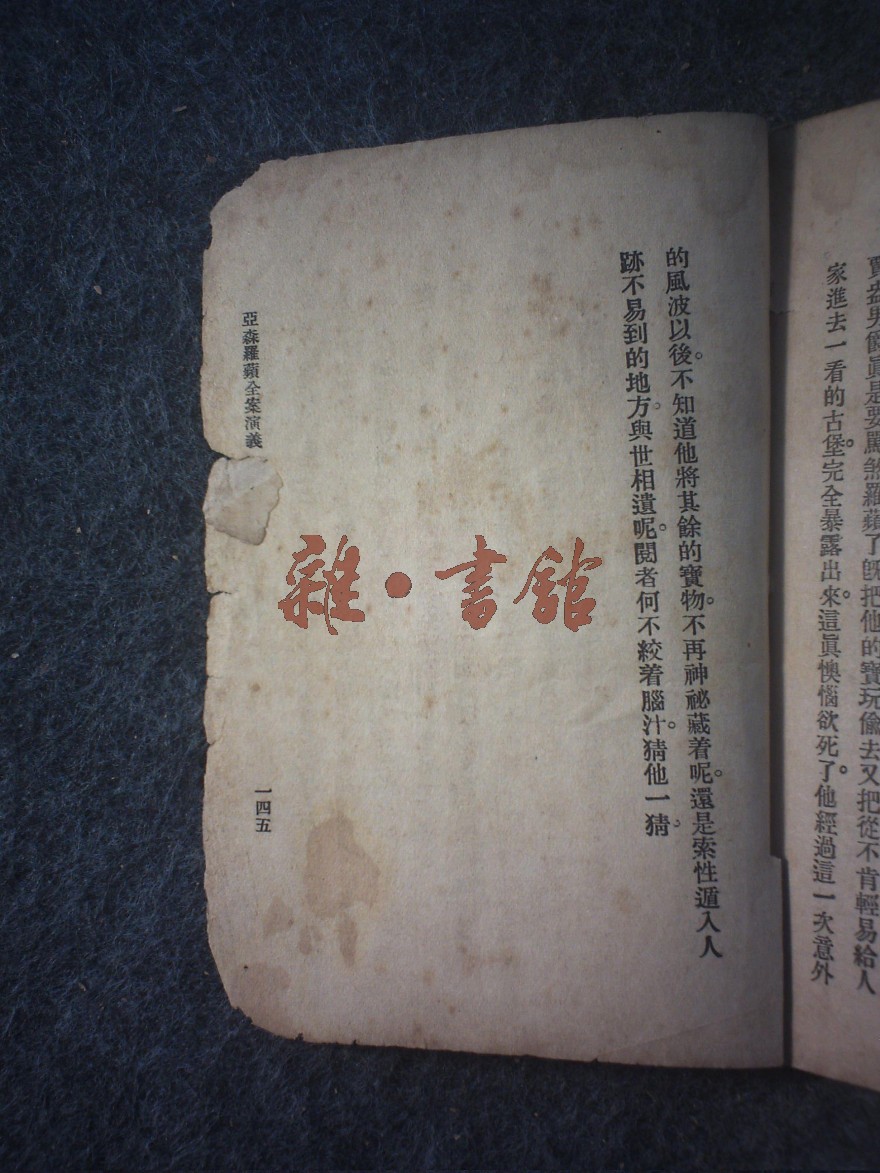 賈盎男爵眞是要鬭煞羅蘋了旣把他的寶玩偷去又把從不肯輕易給人
家進去一看的古堡。完全暴露出來。這眞懊惱欲死了。他經過這一次意外
的風波以後。不知道他將其餘的寶物。不再神祕藏着呢。還是索性遁入人
跡不易到的地方。與世相遺呢。閱者何不絞着腦汁。猜他一猜。
亞森羅蘋全案演義
一四五
雜·書館